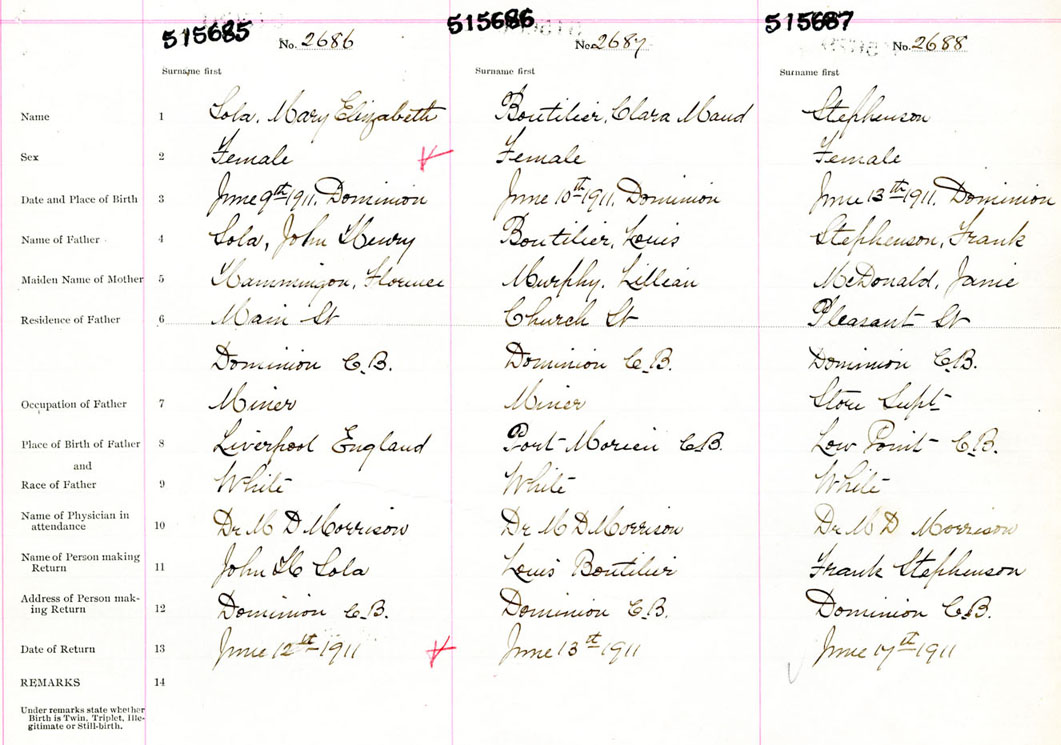 515685 515686 515687
No. 2686 No. 2687 No. 2688
Surname first Surname first Surname first
Name 1 Sola, Mary Elizabeth Boutilier, Clara Maud Stephenson
Sex 2 Female Female Female
Date and Place of Birth 3 June 9th 1911, Dominion June 10th 1911, Dominion June 13th 1911, Dominion
Name of Father 4 Sola, John Henry Boutilier, Louis Stephenson, Frank
Maiden Name of Mother 5 Florence Murphy, Lillian McDonald, Janie
Residence of Father 6 Main St Church St Pleasant St
Dominion C.B. Dominion C.B. Dominion C.B.
Occupation of Father 7 Miner Miner Store Supt
Place of Birth of Father 8 Liverpool England Port Morien C.B. Low Point C.B.
and
Race of Father 9 White White White
Name of Physician in
attendance 10 Dr M D Morrison Dr M D Morrison Dr M D Morrison
Name of Person making
Return 11 John H Sola Louis Boutilier Frank Stephenson
Address of Person mak-
ing Return 12 Dominion C.B. Dominion C.B. Dominion C.B.
Date of Return 13 June 12th 1911 June 13th 1911 June 17th 1911
REMARKS 14
Under remarks state whether
Birth is Twin, Triplet, Ille-
gitimate or Still-birth.